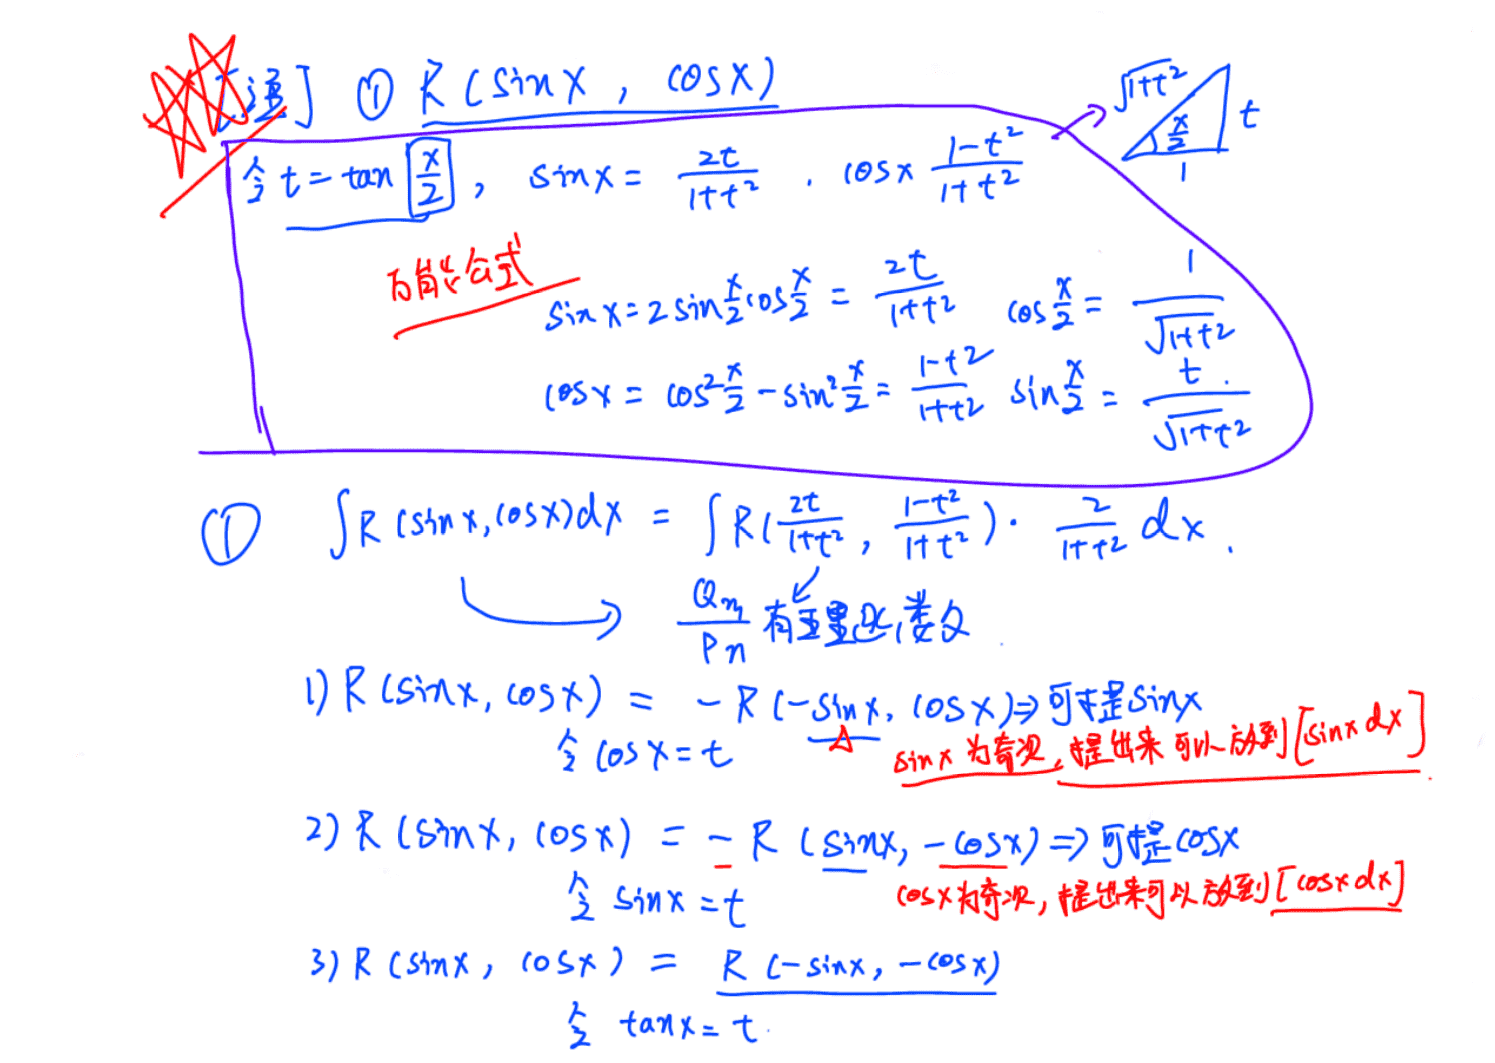 [注] ① R(sinx, cosx)
√1+t² t x/2 1
令 t=tan x/2, sinx= 2t/1+t² . cosx 1-t²/1+t²
万能公式
sinx=2sin x/2 cos x/2 = 2t/1+t² cos x/2 = 1/√1+t²
cosx = cos² x/2 - sin² x/2 = 1-t²/1+t² sin x/2 = t/√1+t²
① ∫R(sinx,cosx)dx = ∫R(2t/1+t², 1-t²/1+t²)· 2/1+t² dx.
Qm/Pn 有理函数
1) R(sinx, cosx) = -R(-sinx, cosx)⇒可提sinx
令 cosx=t
sinx为奇次,提出来可以放到[sinx dx]
2) R(sinx, cosx) = -R(sinx, -cosx)⇒可提cosx
令 sinx=t
cosx为奇次,提出来可以放到[cosx dx]
3) R(sinx, cosx) = R(-sinx, -cosx)
令 tanx=t.